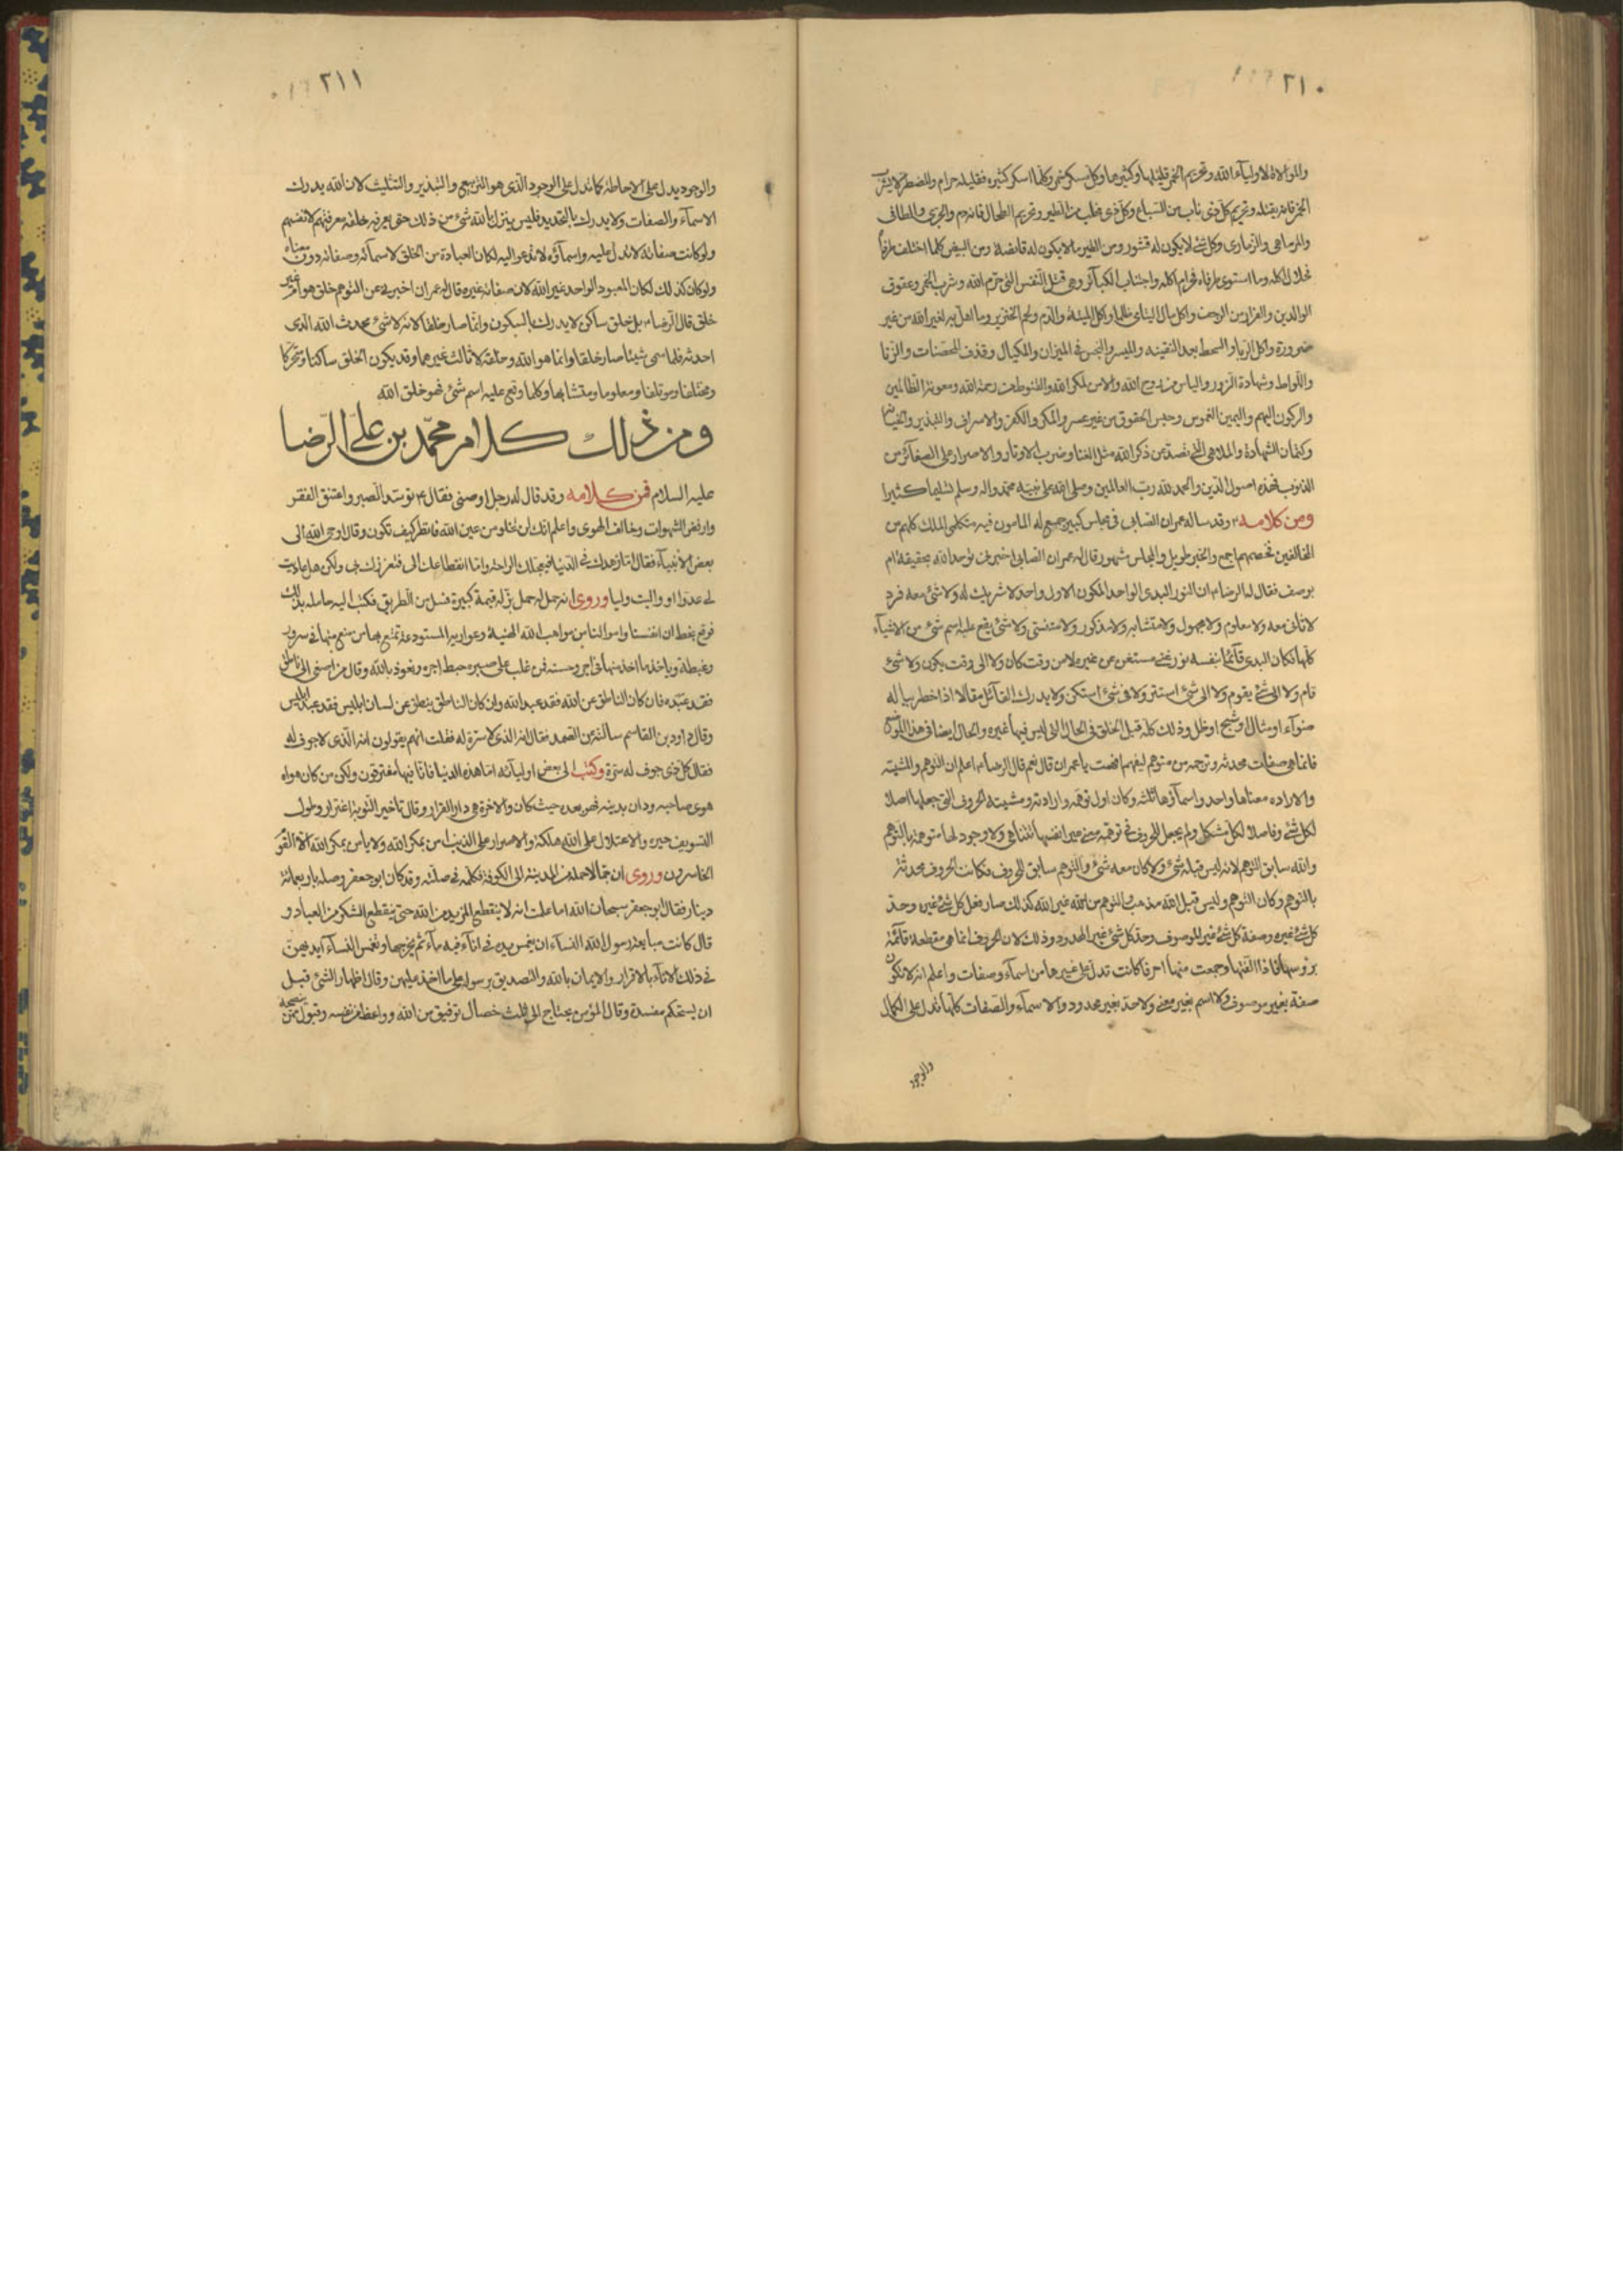 ٢١٠
والموالاة لاولياء الله وتحريم الخمر قليلها وكثيرها وكل مسكر خمر وكلما اسكر كثيره فقليله حرام والمضطر لا يشرب
الخمر فانه يقتله وتحريم كل ذى ناب من السباع وكل ذى مخلب من الطير وتحريم الطحال فانه دم والجرى والطافى
والمرماهى والزمارى وكل شئ لا يكون له قشور ومن الطير ما لا يكون له قانصة ومن البيض كلما اختلف طرفاه
فحلال اكله وما استوى طرفاه فحرام اكله واجتناب الكبائر وهى قتل النفس التى حرم الله وشرب الخمر وعقوق
الوالدين والفرار من الزحف واكل مال اليتامى ظلما واكل الميتة والدم ولحم الخنزير وما اهل به لغير الله من غير
ضرورة واكل الربا والسحت بعد البينه والميسر والبخس فى الميزان والمكيال وقذف المحصنات والزنا
واللواط وشهادة الزور والياس من روح الله والامن لمكر الله والقنوط من رحمة الله ومعونة الظالمين
والركون اليهم واليمين الغموس وحبس الحقوق من غير عسر والمكر والكفر والاسراف والتبذير والخيانة
وكتمان الشهادة والملاهى التى تصد عن ذكر الله مثل الغنا وضرب الاوتار والاصرار على الصغائر من
الذنوب فهذه اصول الدين والحمد لله رب العالمين وصلى الله على نبيه محمد واله وسلم تسليما كثيرا
ومن كلامه وقد ساله عمران الصابى فى مجلس كبير جمع له المامون فيه متكلمى الملل كلهم من
المخالفين فخصمهم اجمع والخبر طويل والمجلس مشهور وقال له عمران الصابى اخبرنى نوحد الله بحقيقة ام
بوصف فقال له الرضا ان النور البدى الواحد المكون الاول واحد لا شريك له ولا شئ معه فرد
لا ثانى معه ولا معلوم ولا مجهول ولا متشابه ولا مذكور ولا منسى ولا شئ يقع عليه اسم شئ من الاشياء
كلها فكان البدى قائما بنفسه نور غنى مستغن عن غيره لا من وقت كان ولا الى وقت يكون ولا شئ
قام ولا الى شئ يقوم ولا الى شئ استتر ولا فى شئ استكن ولا يدرك القائل مقالا اذا خطر بباله
ضوآء او مثال او شبح او ظل وذلك كله قبل الخلق فى الحال التى ليس فيها غيره والحال ايضا فى هذا الموضع
فانما هى صفات محدثه وترجمه من متوهم ليفهم افهمت يا عمران قال نعم قال الرضا اعلم ان التوهم والمشيته
والاراده معناها واحد واسماؤها ثلثه وكان اول توهمه وارادته ومشيته الحروف التى جعلها اصلا
لكل شئ وفاصلا لكل مشكل ولم يجعل للحروف فى توهمه معنى غير انفسها تتناهى ولا وجود لها متوهمة بالتوهم
والله سابق التوهم لانه ليس قبله شئ ولا كان معه شئ والتوهم سابق للحروف فكانت الحروف محدثة
بالتوهم وكان التوهم وليس قبل الله مذهب والتوهم من الله غير الله كذلك صار فعل كل شئ غيره وحد
كل شئ غيره وصفة كل شئ غير الموصوف وحد كل شئ غير المحدود وذلك لان الحروف انما هى مقطعة قائمة
بروسها فاذا الفتها وجمعت منها احرفا كانت تدل على غيرها من اسماء وصفات واعلم انه لا تكون
صفة بغير موصوف ولا اسم بغير معنى ولا حد بغير محدود والاسماء والصفات كلها تدل على الكمال
والوجود
٢١١
والوجود يدل على الاحاطة كما تدل على الوجود الذى هو التربيع والتبذير والتثليث لان الله يدرك
الاسماء والصفات ولا يدرك بالتحديد فليس ينزل بالله شئ من ذلك حتى يعرفه خلقه معرفتهم لانفسهم
ولو كانت صفاته لا تدل عليه واسماؤه لا تدعو اليه لكان العبادة من الخلق لاسمائه وصفاته دون معناه
ولو كان كذلك لكان المعبود الواحد غير الله لان صفاته غيره قال له عمران اخبرنى عن التوهم خلق هو ام غير
خلق قال الرضا بل خلق ساكن لا يدرك بالسكون وانما صار خلقا لانه لا شئ محدث الله الذى
احدثه فلما سمى شيئا صار خلقا وانما هو الله وخلقه لا ثالث غيرهما وقد يكون الخلق ساكنا ومتحركا
ومختلفا وموتلفا ومعلوما ومتشابها وكلما وقع عليه اسم شئ فهو خلق الله
ومن ذلك كلام محمد بن على الرضا
عليه السلام فمن كلامه وقد قال له رجل اوصنى فقال توسد الصبر واعتنق الفقر
وارفض الشهوات وخالف الهوى واعلم انك لن تخلو من عين الله فانظر كيف تكون وقال اوحى الله الى
بعض الانبياء فقال اما زهدك فى الدنيا فتعجلك الراحة واما انقطاعك الى فتعززك بى ولكن هل عاديت
لى عدوا او واليت وليا وروى انه حمل له حمل بز له قيمة كبيرة فسل من الطريق فكتب اليه حامله بذلك
فوقع بخطه ان انفسنا واموالنا من مواهب الله الهنيئة وعواريه المستودعة تمتع بما من منع منها فى سرور
وغبطة وياخذ ما اخذ منها فى اجر وحسبة فمن غلب على صبره حبط اجره ونعوذ بالله وقال من اصغى الى ناطق
فقد عبده فان كان الناطق عن الله فقد عبد الله وان كان الناطق ينطق عن لسان ابليس فقد عبد ابليس
وقال داود بن القاسم سالته عن الصمد فقال الذى لا سرة له فقلت انهم يقولون انه الذى لا جوف له
فقال كل ذى جوف له سرة وكتب الى بعض اوليائه اما هذه الدنيا فانا فيها مغترقون ولكن من كان هواه
هوى صاحبه ودان بدينه فهو معه حيث كان والاخرة هى دار القرار وقال تاخير التوبة اغترار وطول
التسويف حيره والاعتلال على الله هلكة والاصرار على الذنب امن بمكر الله ولا يامن بمكر الله الا القوم
الخاسرون وروى ان جمالا حمله من المدينة الى الكوفة فكلمه فى صلته وقد كان ابو جعفر وصله باربعمائة
دينار فقال ابو جعفر سبحان الله اما علمت انه لا ينقطع المزيد من الله حتى ينقطع الشكر من العباد و
قال كانت مبايعة رسول الله النساء ان يغمس يده فى اناء فيه ماء ثم يخرجها وتغمس النساء ايديهن
فى ذلك الاناء بالاقرار والايمان بالله والتصديق برسوله على ما اخذ عليهن وقال اظهار الشئ قبل
ان يستحكم مفسدة وقال المؤمن يحتاج الى ثلث خصال توفيق من الله وواعظ من نفسه وقبول ممن ينصحه